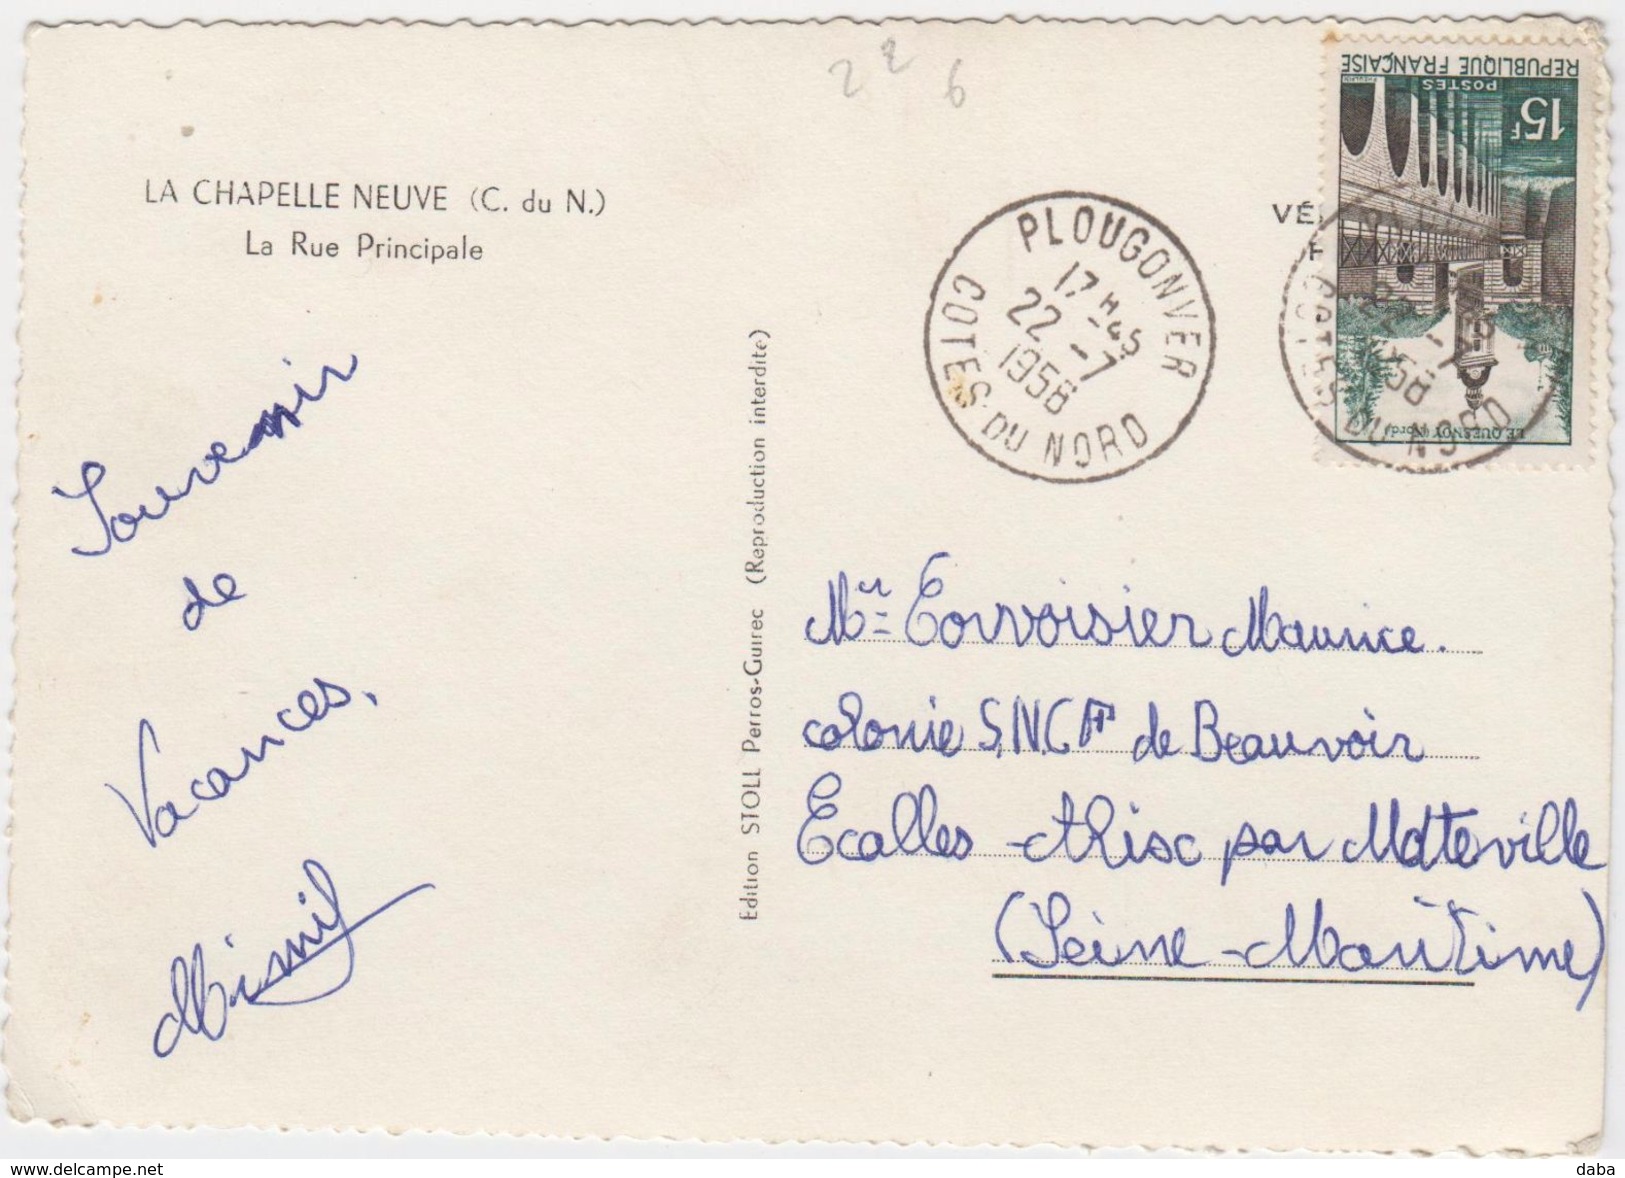 2 2 6
LA CHAPELLE NEUVE (C. du N.)
La Rue Principale
Souvenir
de
Vacances.
Edition STOLL Perros-Guirec (Reproduction interdite)
PLOUGONVER
17 H -45
22 -7
1958
COTES-DU NORD
VÉ
REPUBLIQUE FRANÇAISE
POSTES
15F
LE QUESNOY (Nord)
22 -7
1958
COTES DU NORD
Mr Corvoisier Maurice.
colonie SNCF de Beauvoir
Ecalles-Alix par Motteville
(Seine-Maritime)
www.delcampe.net
daba